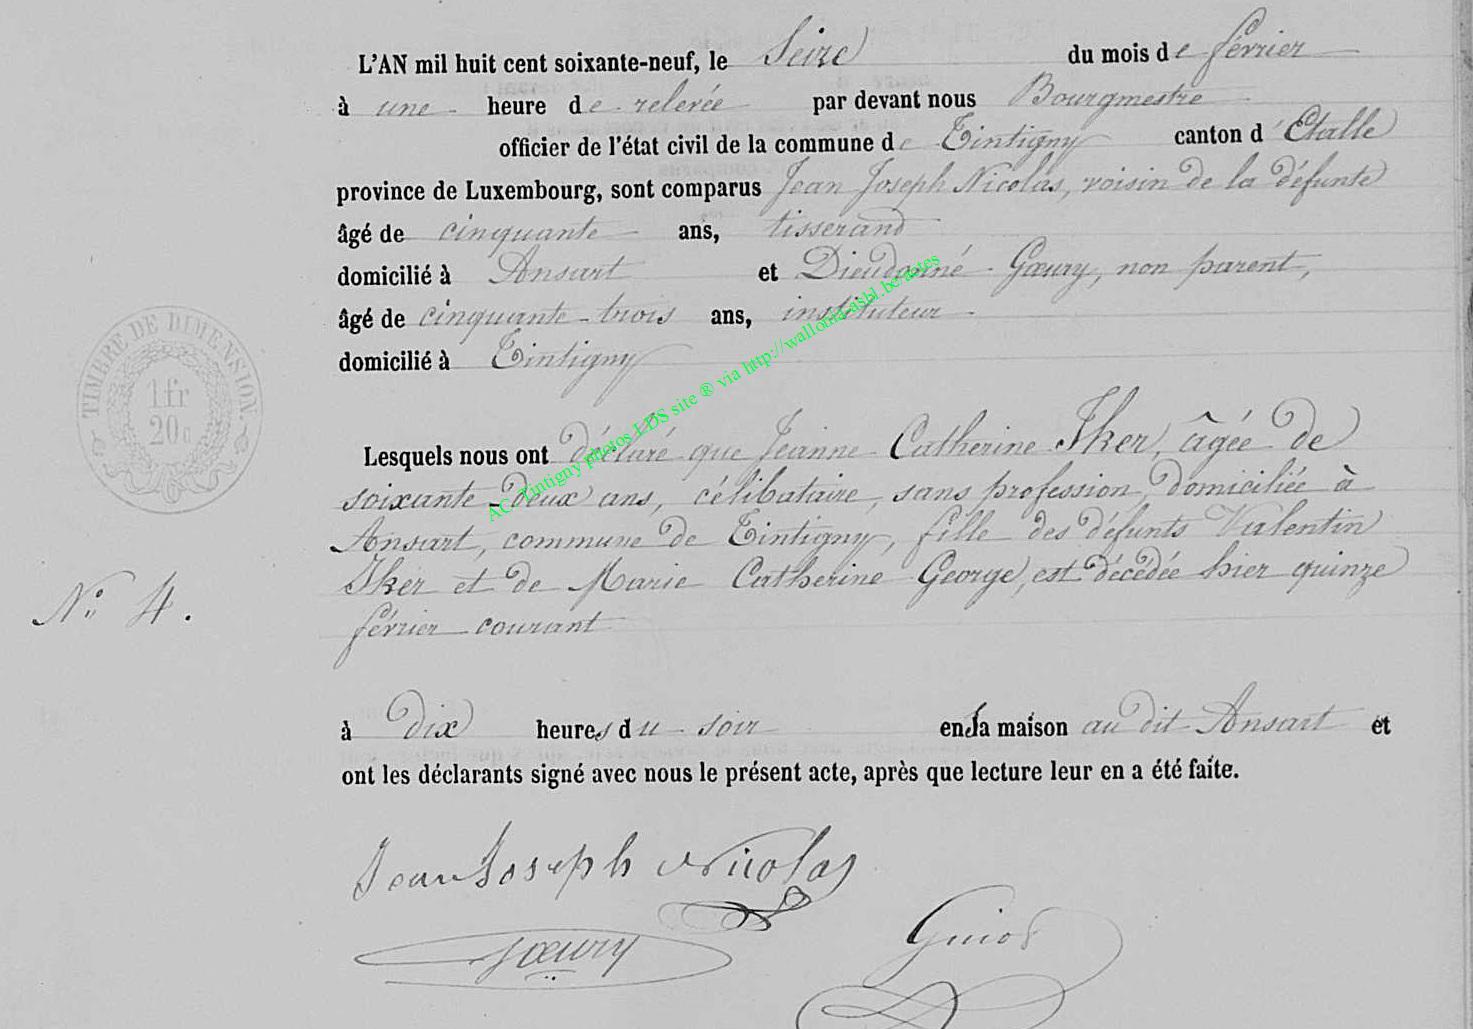 L'AN mil huit cent soixante-neuf, le Seize du mois de février
à une heure de relevée par devant nous Bourgmestre
officier de l'état civil de la commune de Tintigny canton d'Etalle
province de Luxembourg, sont comparus Jean Joseph Nicolas, voisin de la défunte
âgé de cinquante ans, tisserand
domicilié à Ansart et Dieudonné Gœury, non parent,
âgé de cinquante-trois ans, instituteur
domicilié à Tintigny
TIMBRE DE DIMENSION
1 fr
20 c
Lesquels nous ont déclaré que Jeanne Catherine Iker, âgée de
soixante-deux ans, célibataire, sans profession, domiciliée à
Ansart, commune de Tintigny, fille des défunts Valentin
Iker et de Marie Catherine George, est décédée hier quinze
février courant
N° 4.
à dix heures du soir en sa maison au dit Ansart et
ont les déclarants signé avec nous le présent acte, après que lecture leur en a été faite.
Jean Joseph Nicolas
Gœury
Guiot
AC Tintigny photos LDS site ® via http://wallonia-asbl.be/actes